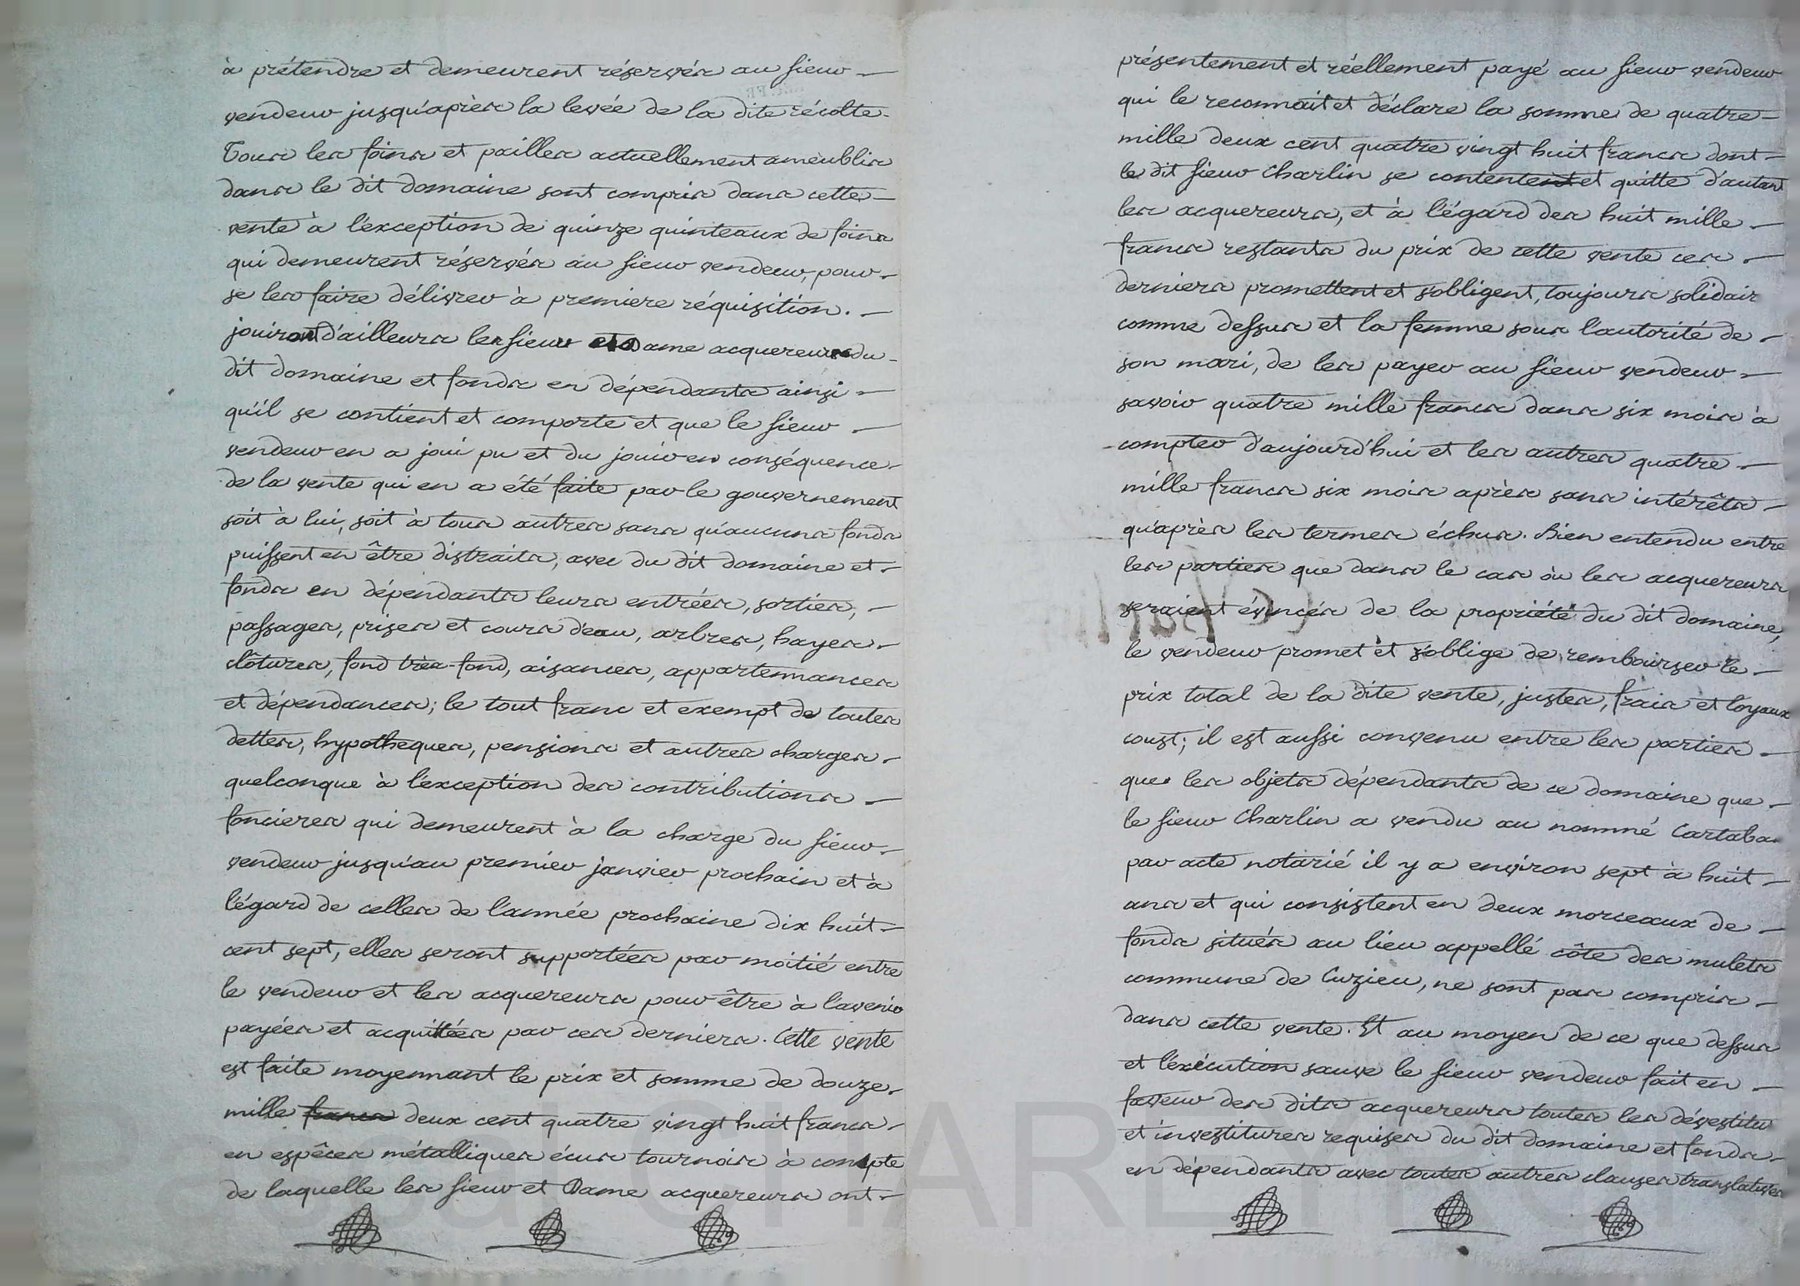 à prétendre et demeurent réservés au sieur
vendeur jusqu'après la levée de la dite récolte.
Tous les foins et pailles actuellement ameublis
dans le dit domaine sont compris dans cette
vente à l'exception de quinze quinteaux de foins
qui demeurent réservés au sieur vendeur, pour
se les faire délivrer à premiere réquisition.
jouiront d'ailleurs les sieur et Dame acquereurs du
dit domaine et fonds en dépendants ainsi
qu'il se contient et comporte et que le sieur
vendeur en a joui pu et du jouir en conséquence
de la vente qui en a été faite par le gouvernement
soit à lui, soit à tous autres sans qu'aucuns fonds
puissent en être distraits, avec du dit domaine et
fonds en dépendants leurs entrées, sorties,
passages, prises et cours d'eau, arbres, hayes
clôtures, fond très-fond, aisances, appartennances
et dépendances; le tout franc et exempt de toutes
dettes, hypotheques, pensions et autres charges
quelconque à l'exception des contributions
foncieres qui demeurent à la charge du sieur
vendeur jusqu'au premier janvier prochain et à
l'égard de celles de l'année prochaine dix huit
cent sept, elles seront supportées par moitié entre
le vendeur et les acquereurs pour être à l'avenir
payées et acquittées par ces derniers. Cette vente
est faite moyennant le prix et somme de douze
mille francs deux cent quatre vingt huit francs
en espêces métalliques écus tournois à compte
de laquelle les sieur et Dame acquereurs ont
présentement et réellement payé au sieur vendeur
qui le reconnait et déclare la somme de quatre
mille deux cent quatre vingt huit francs dont
le dit sieur Charlin se contentent et quitte d'autant
les acquereurs, et à l'égard des huit mille
francs restants du prix de cette vente ces
derniers promettent et s'obligent, toujours solidair
comme dessus et la femme sous l'autorité de
son mari, de les payer au sieur vendeur
savoir quatre mille francs dans six mois à
compter d'aujourd'hui et les autres quatre
mille francs six mois après sans intérêts
qu'après les termes échus. Bien entendu entre
les parties que dans le cas où les acquereurs
seraient évincés de la propriété du dit domaine,
le vendeur promet et s'oblige de rembourser le
prix total de la dite vente, justes, frais et loyaux
coust; il est aussi convenu entre les parties
que les objets dépendants de ce domaine que
le sieur Charlin a vendu au nommé Cartaba
par acte notarié il y a environ sept à huit
ans et qui consistent en deux morceaux de
fonds situés au lieu appellé côte des mulets
commune de Cuzieu, ne sont pas compris
dans cette vente. Et au moyen de ce que dessus
et l'exécution sauve le sieur vendeur fait en
faveur des dits acquereurs toutes les dévestitu
et investitures requises du dit domaine et fonds
en dépendants avec toutes autres clauses translatives